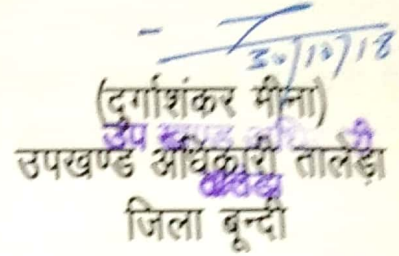 30/10/18
(दुर्गाशंकर मीना)
उपखण्ड अधिकारी तालेड़ा
जिला बून्दी